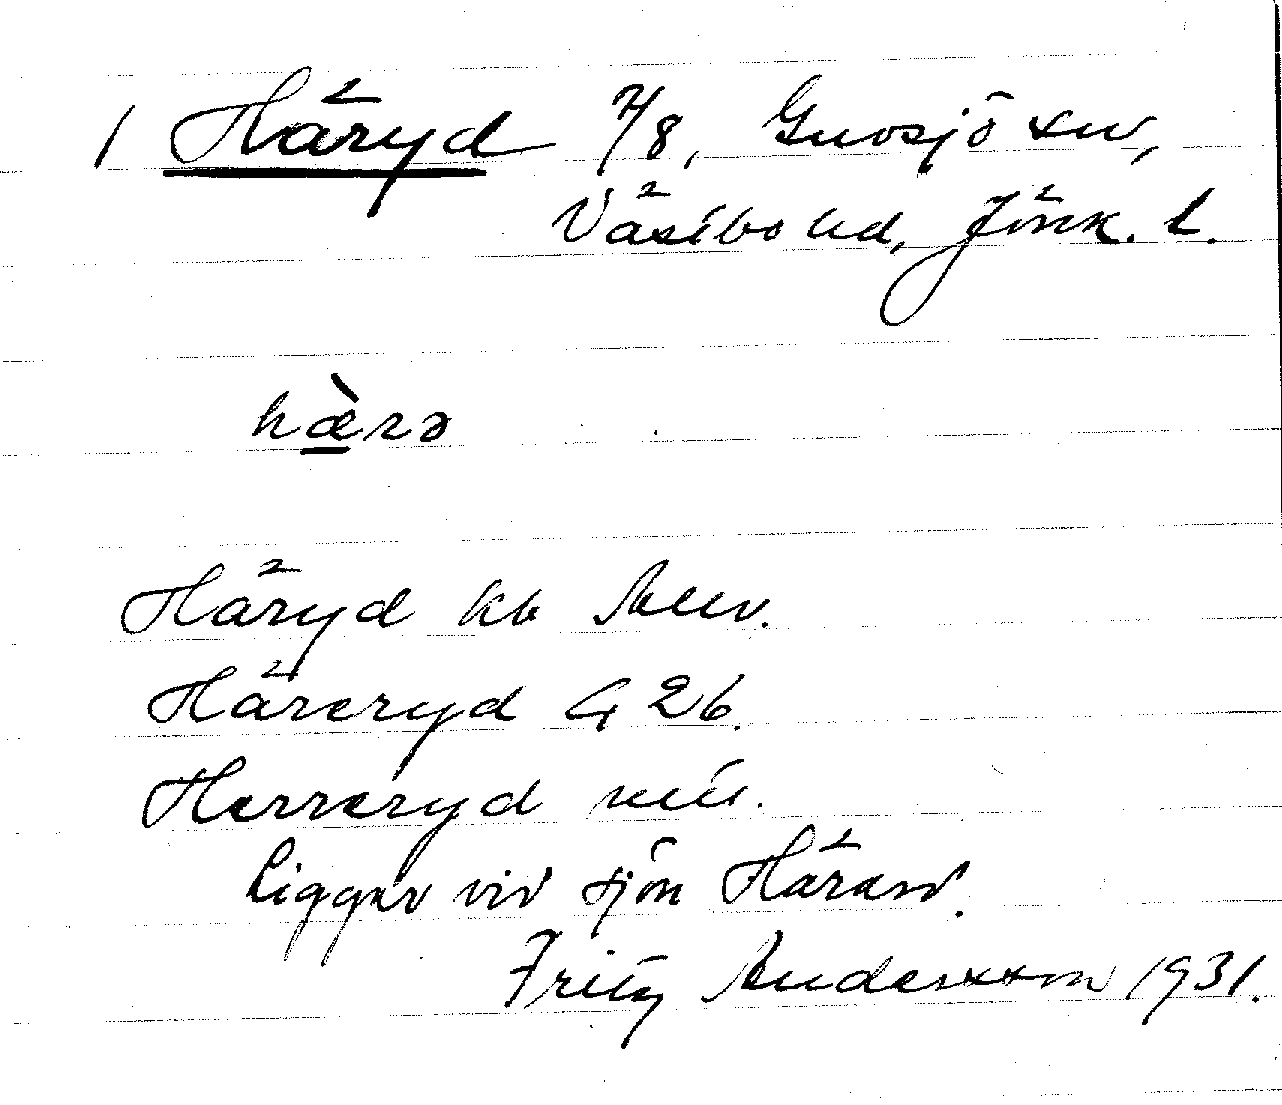 1 Häryd 7/8, Gnosjö sn,
Västbo hd, Jönk. l.
hæ̀rə
Häryd kb Allm.
Häreryd G 26.
Herreryd
Ligger vid sjön Hären.
Fritz Andersson 1931.